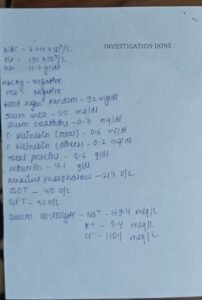 INVESTIGATION DONE:
WBC - 6.24 x 10⁹/L
Plt - 191 x 10⁹/L
Hb - 11.2 g/dl
HBsAg - Negative
HCV - Negative
Blood sugar Random - 92 mg/dl
Serum urea - 25 mg/dl
Serum creatinine - 0.7 mg/dl
S. Bilirubin (total) - 0.6 m/dl
S. Bilirubin (direct) - 0.2 mg/dl
Total protein - 8.2 g/dl
Albumin - 4.1 g/dl
Alkaline phosphatase - 217 U/L
SGOT - 40 U/L
SGPT - 57 U/L
Serum electrolyte - Na⁺ - 139.4 meq/L
K⁺ - 3.4 meq/L
Cl⁻ - 110.1 meq/L